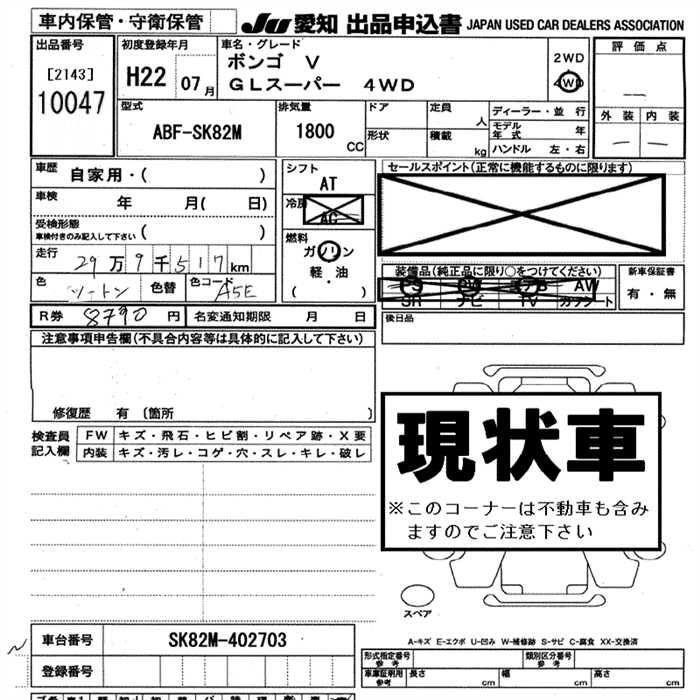 車内保管・守衛保管
JU 愛知 出品申込書 JAPAN USED CAR DEALERS ASSOCIATION
出品番号
[2143]
10047
初度登録年月
H22 07月
車名・グレード
ボンゴ V
GLスーパー 4WD
2WD
4WD
評価点
外装 内装
型式
ABF-SK82M
排気量
1800 CC
ドア
形状
定員 人
積載 kg
ディーラー・並行
モデル年式 年
ハンドル 左・右
車歴 自家用・( )
車検 年 月( 日)
受検形態
車検付きのみ記入して下さい ( )
走行 29万9千517km
色 ツートン 色替 色コード A5E
シフト
AT
冷房
AC
燃料
ガソリン
軽・油
( )
セールスポイント(正常に機能するものに限ります)
装備品(純正品に限り○をつけてください)
PS PW エアB AW
SR ナビ TV カワシート
新車保証書
有・無
R券 8790円 名変通知期限 月 日
後日品
注意事項申告欄(不具合内容等は具体的に記入して下さい)
修復歴 有〔箇所 〕
検査員記入欄
FW キズ・飛石・ヒビ割・リペア跡・X要
内装 キズ・汚レ・コゲ・穴・スレ・キレ・破レ
現状車
※このコーナーは不動車も含み
ますのでご注意下さい
スペア
A-キズ E-エクボ U-凹み W-補修跡 S-サビ C-腐食 XX-交換済
車台番号 SK82M-402703
登録番号
型式指定番号 参考 類別区分番号 参考
車庫証明用 参考 長さ cm 幅 cm 高さ cm